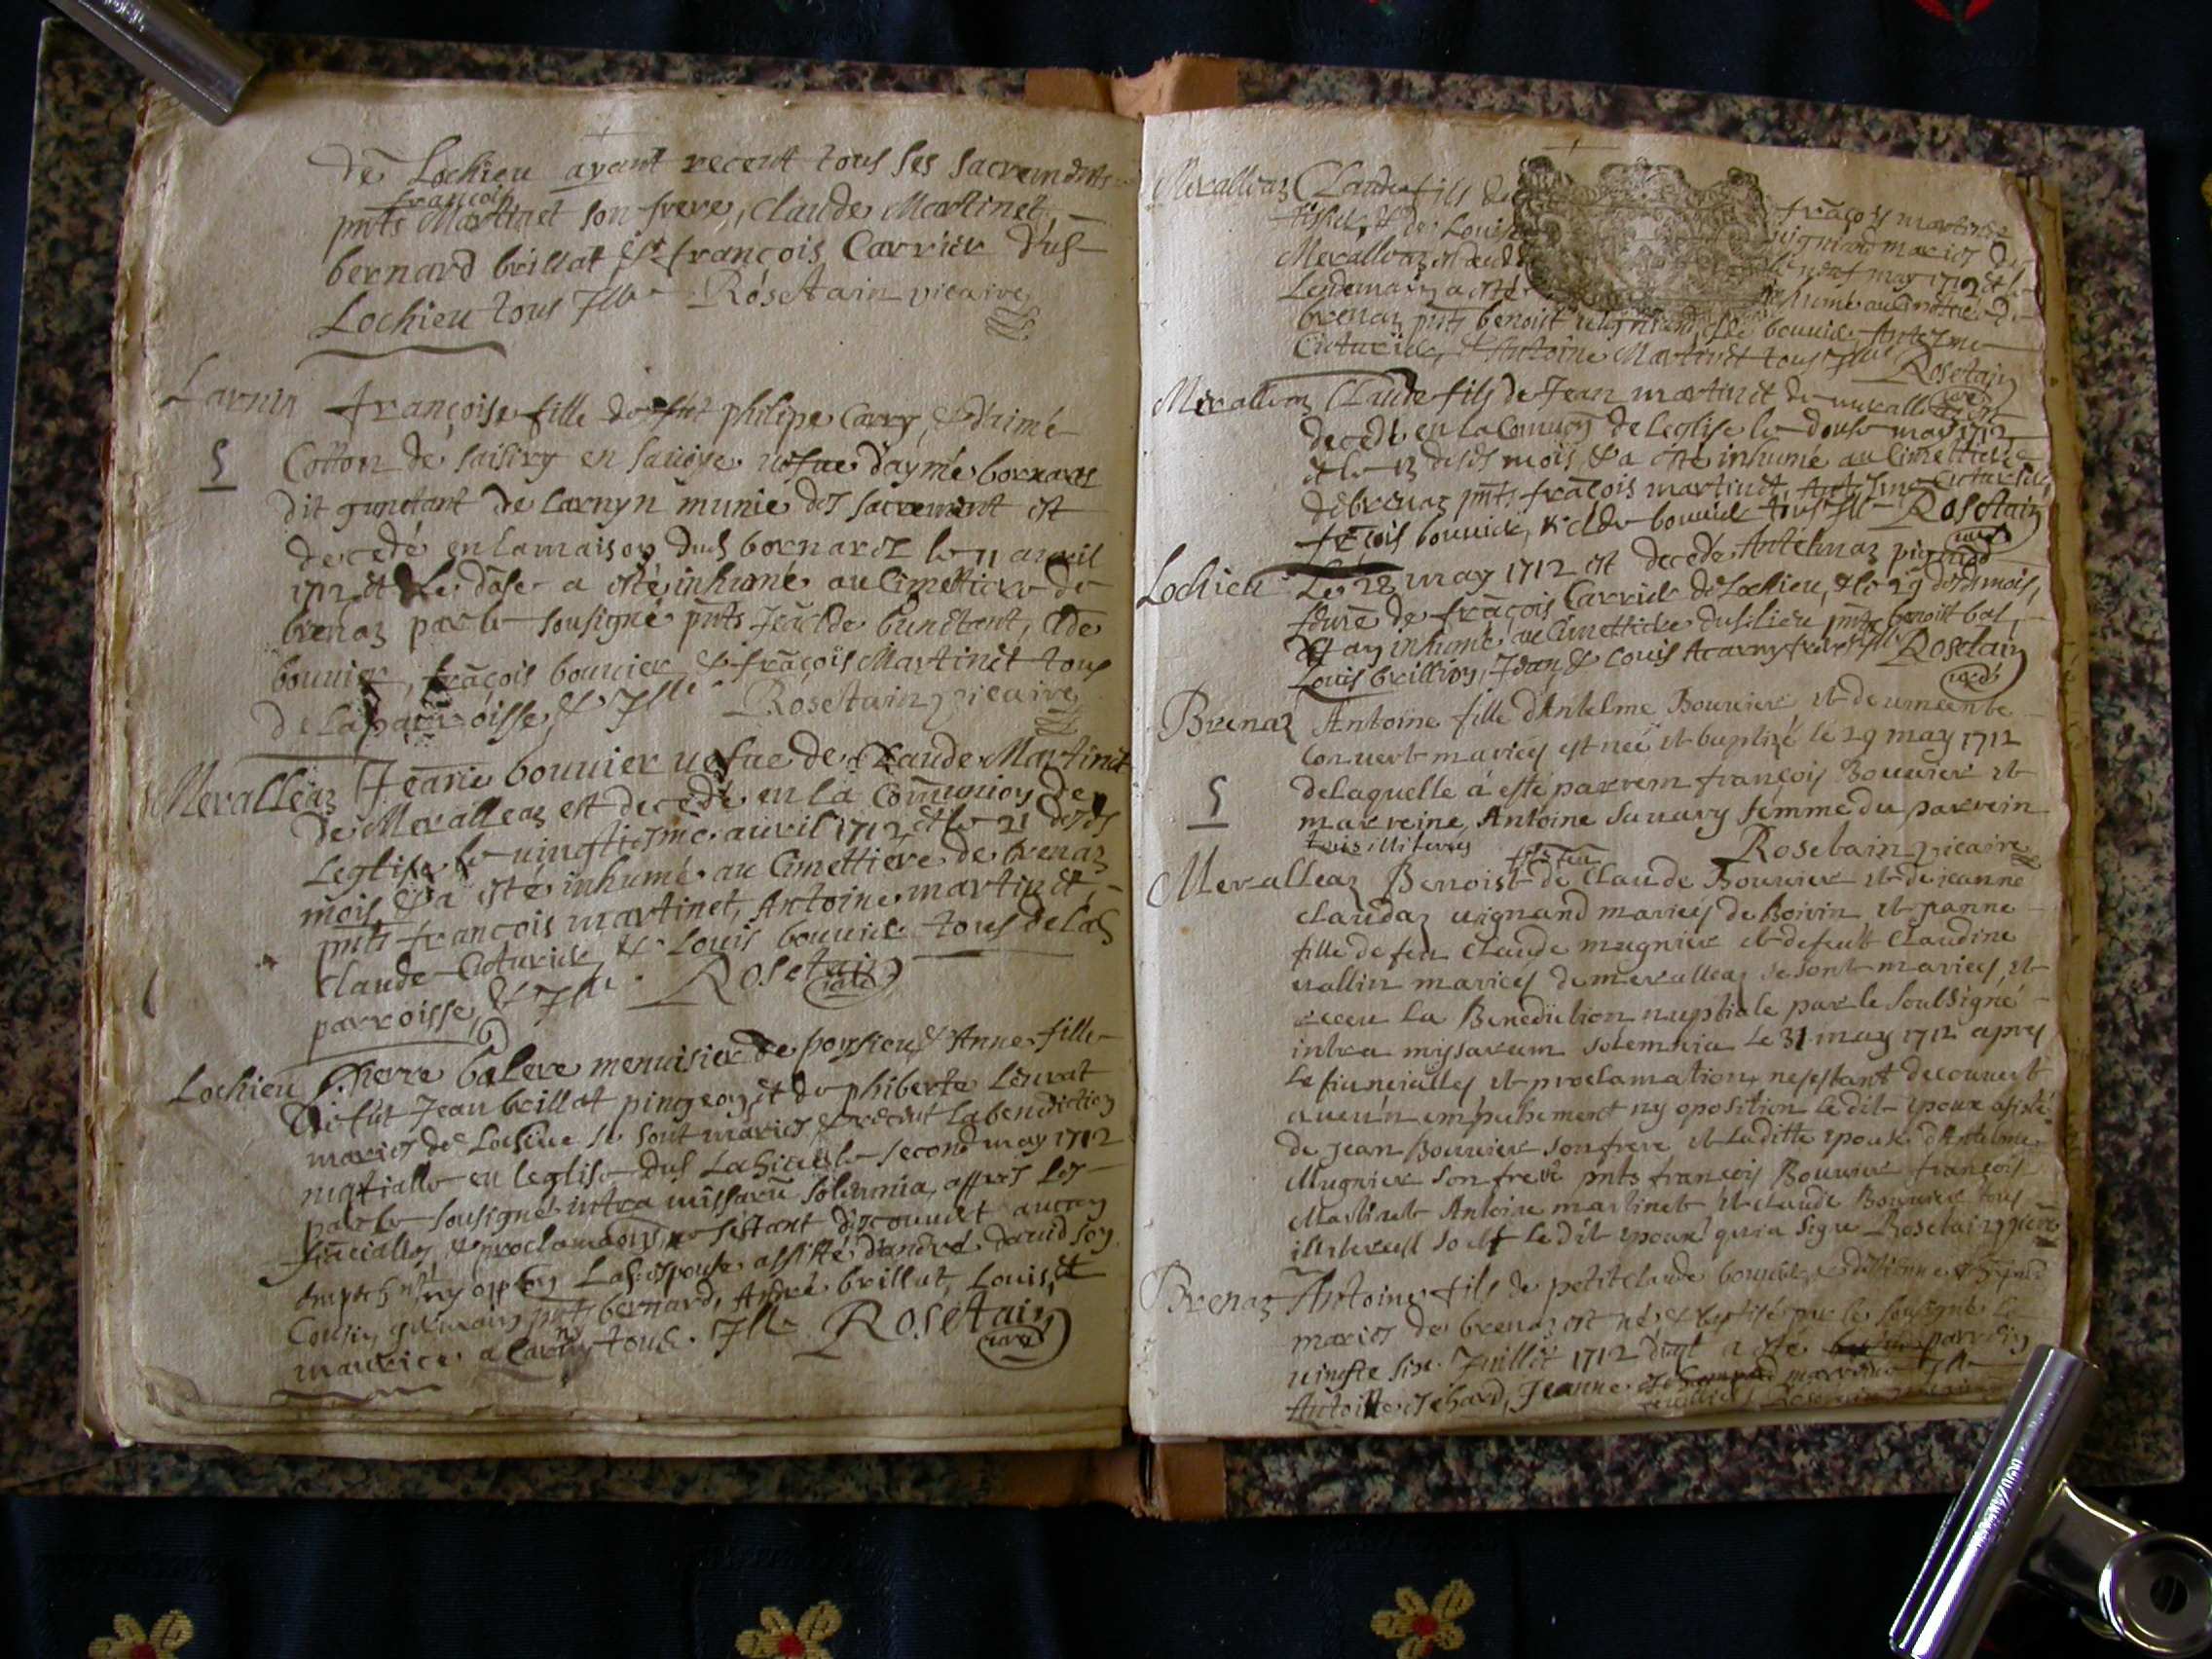 de Lochieu ayant receut tous ses sacrements
françois
pnts Martinet son frere, Claude Martinet,
bernard brillat & françois Carrier dud
Lochieu tous Ille Rosetain vicaire
Larnin françoise fille de fut philipe Carry, & d'aimé
5 Cotton de saisiry en sauoye uefue d'aymé bornard
dit gunetant de Larnyn munie des sacrement est
decedé en la maison dud bornard le 11 avril
1712 et Le dose a esté inhumé au Cimettiere de
brenaz par le sousigné pnts
bouuier, frãçois bouuier, & frãçois Martinet tous
de la parroisse, & Ille Rosetain vicaire
Meralleaz Jeanne bouuier uefue de Claude Martinet
de Meralleaz est decedé en la Comunion de
Leglise le uingtiesme auuril 1712 & le 21 desds
mois, & a esté inhumé au Cimettiere de brenaz
pnts françois martinet, Antoine martinet,
Claude Cuturier, & Louis bouuier tous de lad
parroisse, & Ille Rosetain
Lochieu Pierre balere menuisier de & Anne fille
de fut Jean brillat pingeon, et de phiberte
mariés de Lochieu se sont mariés & receut la bendiction
nuptialle en leglise dud Lochieu le second may 1712
par le sousigné intra missarũ solemnia, appres les
fianciallies & proclamaons, ne sestant discouuert aucun
ny lad espouse assisté d'andré dauid son
Cousin germain pnts bernard, André brillat, Louis, et
maurice a Carny tous Ille Rosetain
Meralleaz Claude fils de frãçois martinet
& de Louise uignand mariés de
Meralleaz may 1712 & le
Lendemain a esté inhumé au Cimettiere de
brenaz pnts benoist uignand, Cde bouuier, Antelme
Cuturier, & Antoine Martinet tous Ille Rosetain
Meralleaz Claude fils de Jean martinet de meralleaz est
decedé en la Comuon de Leglise le douse may 1712
& le 13 desds mois, & a esté inhumé au Cimettiere
de brenaz pnts frãçois martinet, Antelme Cuturier,
frãçois bouuier, & Cde bouuier tous Ille Rosetain
Lochieu Le 28 may 1712 est decedé Antelmaz
feme de frãçois Carrier de Lochieu, & le 29 desds mois,
inhumé au Cimettiere dud lieu pnts benoist
Louis brillion, Jean & Louis Acarny freres Ille Rosetain
Brenaz Antoine fille d'Antelme Bouuier et de
Conuert mariés est neé et baptisé le 29 may 1712
5 de laquelle à esté parrein françois Bouuier et
marreine Antoine Sauary femme du parrein
tous illiteres Rosetain vicaire
fils feu
Meralleaz Benoist de Claude Bouuier et de jeanne
claudaz uignand mariéz de Boirin et panne
fille de feu Claude mugnier et defeut Claudine
uallin mariés de meralleaz se sont mariés et
receu La Benediction nuptiale par le Soubsigné
intra mysarum solemnia Le 31 may 1712 apres
Le fiancialles et proclamation, nesestant decouuert
aucun empechement ny oposition Le dit epoux asisté
de jean Bouuier son frere et Laditte epouse d'Antelme
Mugnier son frere pnts françois Bouuier françois
Martinet Antoine martinet et claude Bouuier tous
soutf Le dit epoux qui a signe Rosetain
Brenaz Antoine fils de petit claude bouuier, &
mariés de brenaz est né & baptisé par le sousigné le
uingte sixe Juillet 1712 duql a esté parrein
Antoine Jeanne marreine Ille